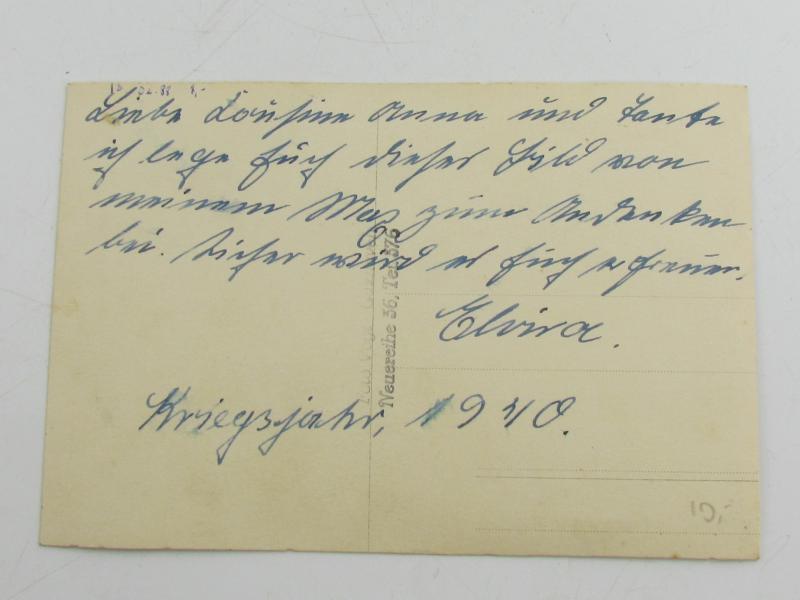 Liebe Cousine Anna und Tante
ich lege Euch dieses Bild von
meinem Max zum Andenken
bei. Sicher wird es Euch erfreuen.
Elvira.
Kriegsjahr, 1940.
Neuereihe 36, Tel. 376
10,-